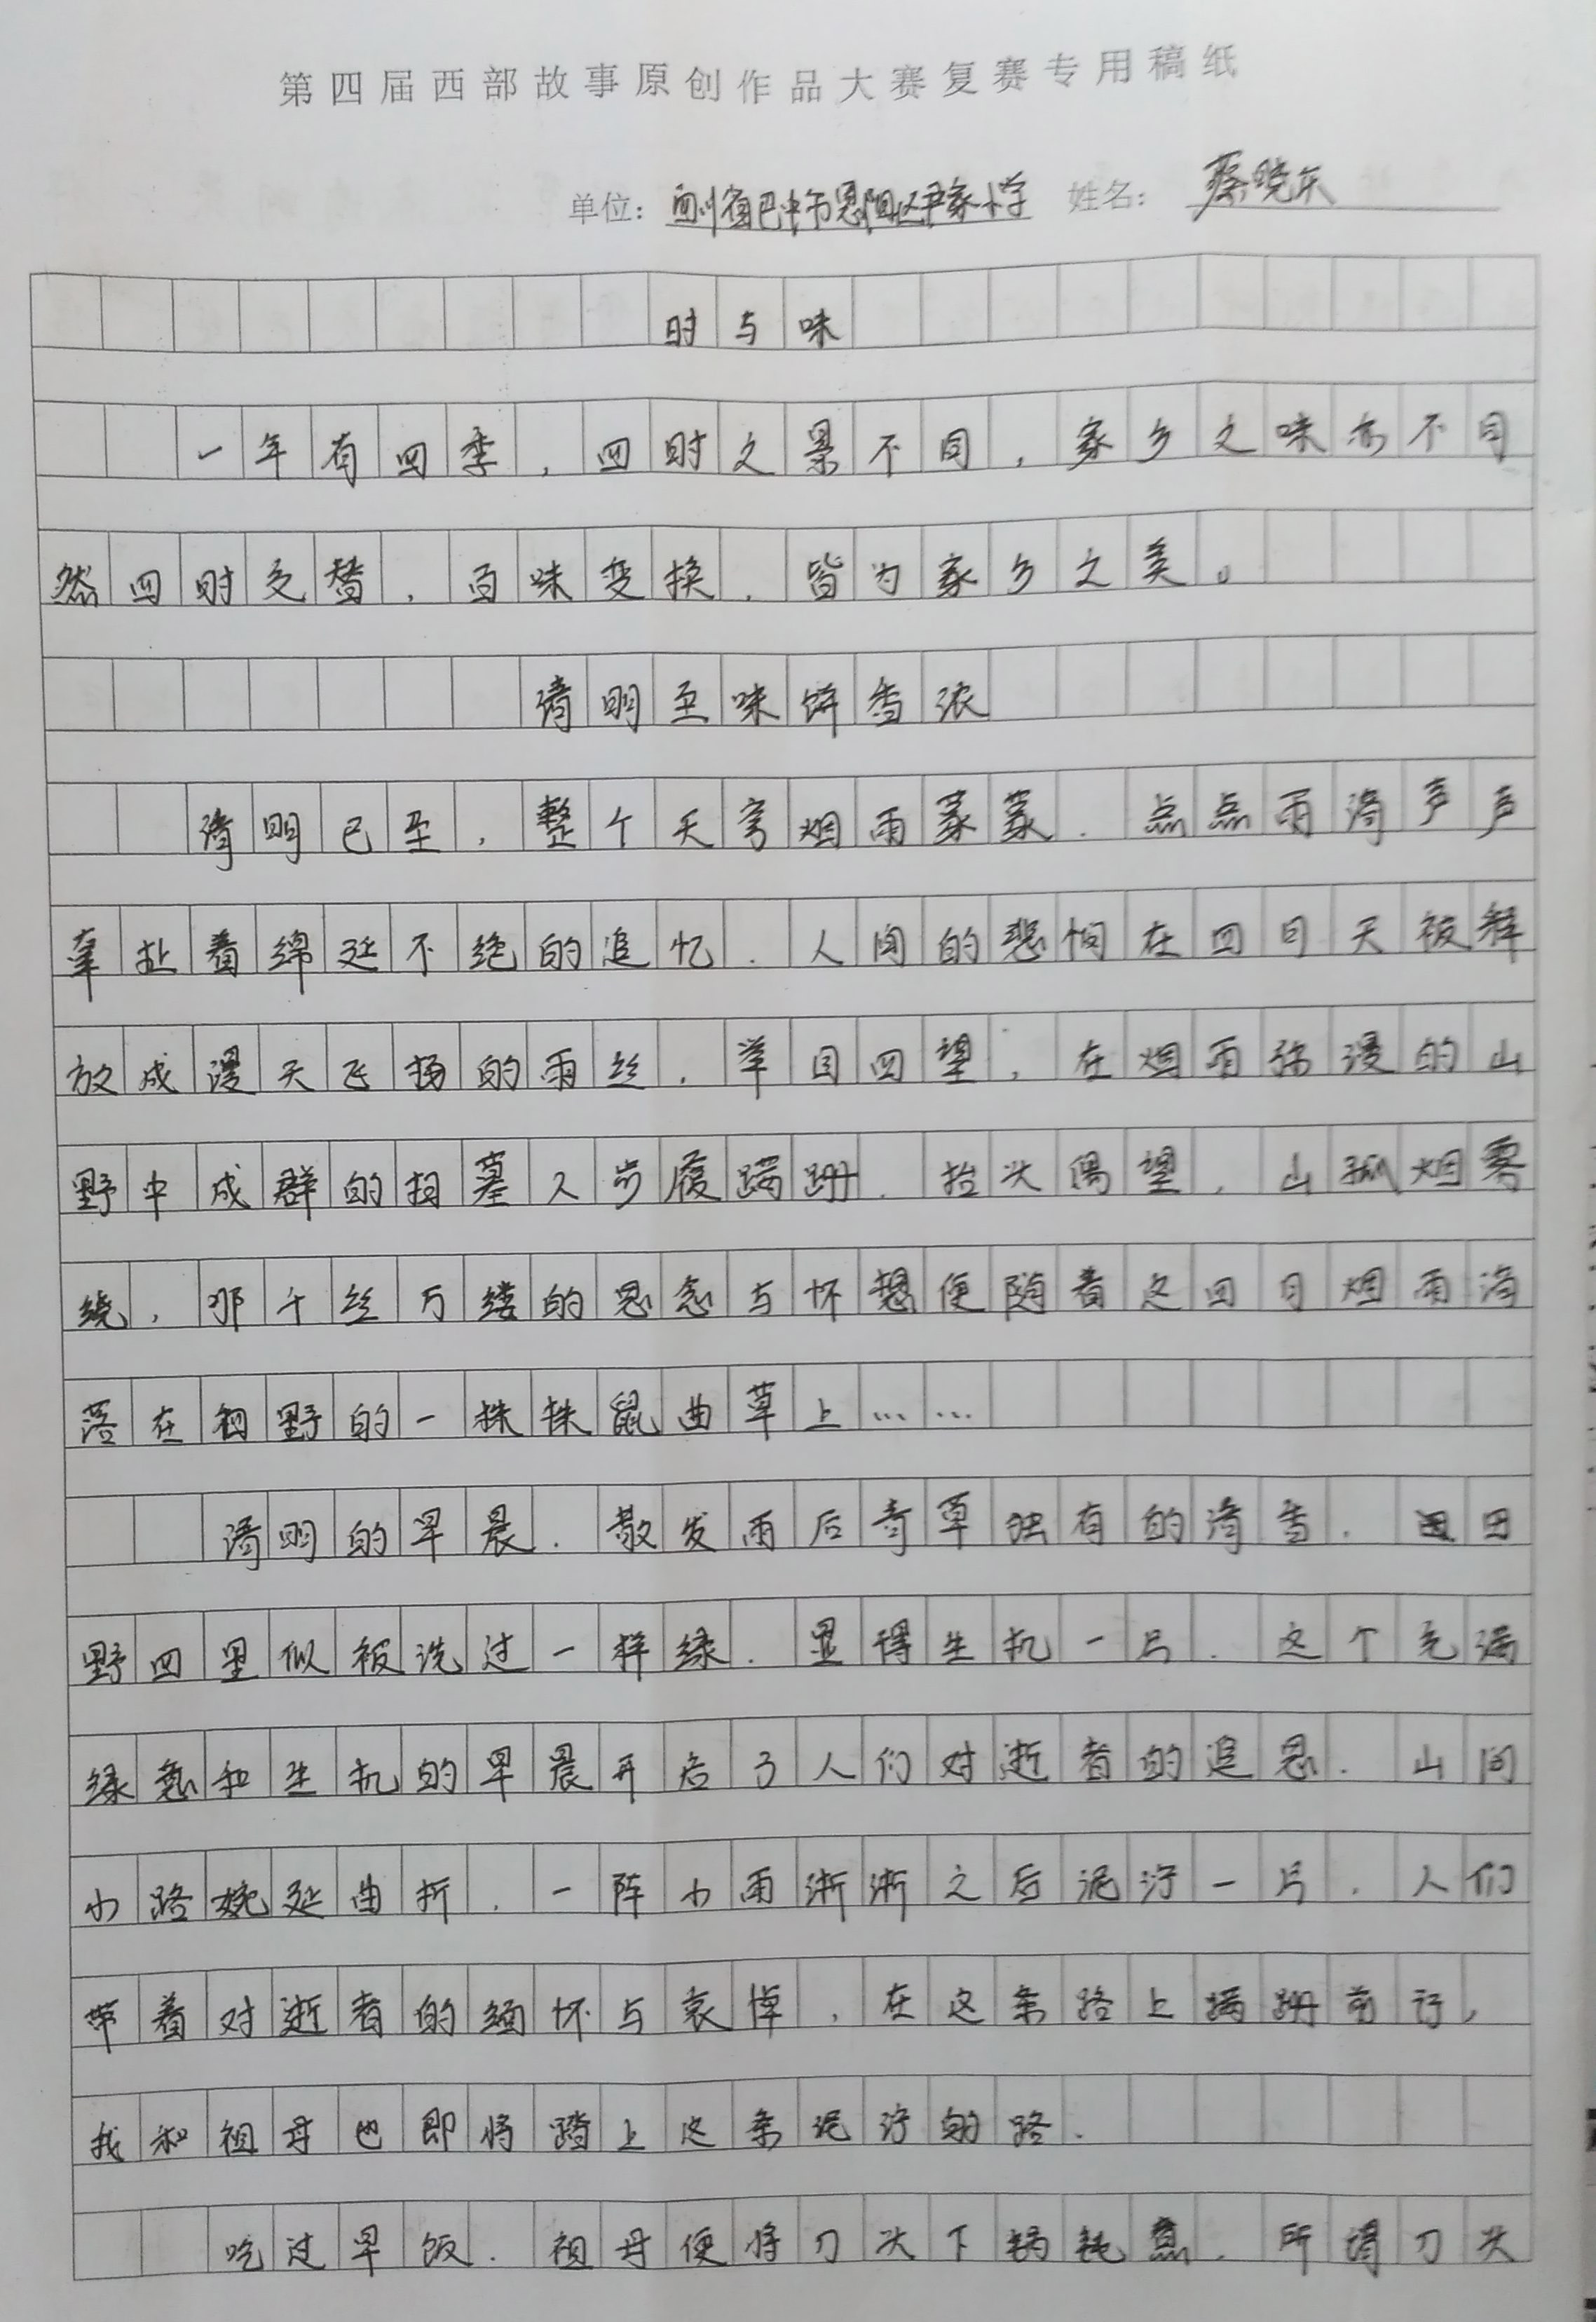 第四届西部故事原创作品大赛复赛专用稿纸
单位：四川省巴中市恩阳区尹家小学 姓名：蔡晓东
时与味
一年有四季，四时之景不同，家乡之味亦不同
然四时交替，百味变换，皆为家乡之美。
清明至味饼香浓
清明已至，整个天穹烟雨蒙蒙．点点雨滴声声
牵扯着绵延不绝的追忆．人间的悲悯在四月天被释
放成漫天飞扬的雨丝．举目四望，在烟雨弥漫的山
野中成群的扫墓人步履蹒跚．抬头偶望，山孤烟雾
绕，那千丝万缕的思念与怀想便随着这四月烟雨滴
落在田野的一株株鼠曲草上……
清明的早晨．散发雨后青草独有的清香．田
野四里似被洗过一样绿．显得生机一片．这个充满
绿意和生机的早晨开启了人们对逝者的追思．山间
小路婉延曲折．一阵小雨淅淅之后泥泞一片．人们
带着对逝者的缅怀与哀悼，在这条路上蹒跚前行，
我和祖母也即将踏上这条泥泞的路．
吃过早饭．祖母便将刀头下锅炖煮．所谓刀头